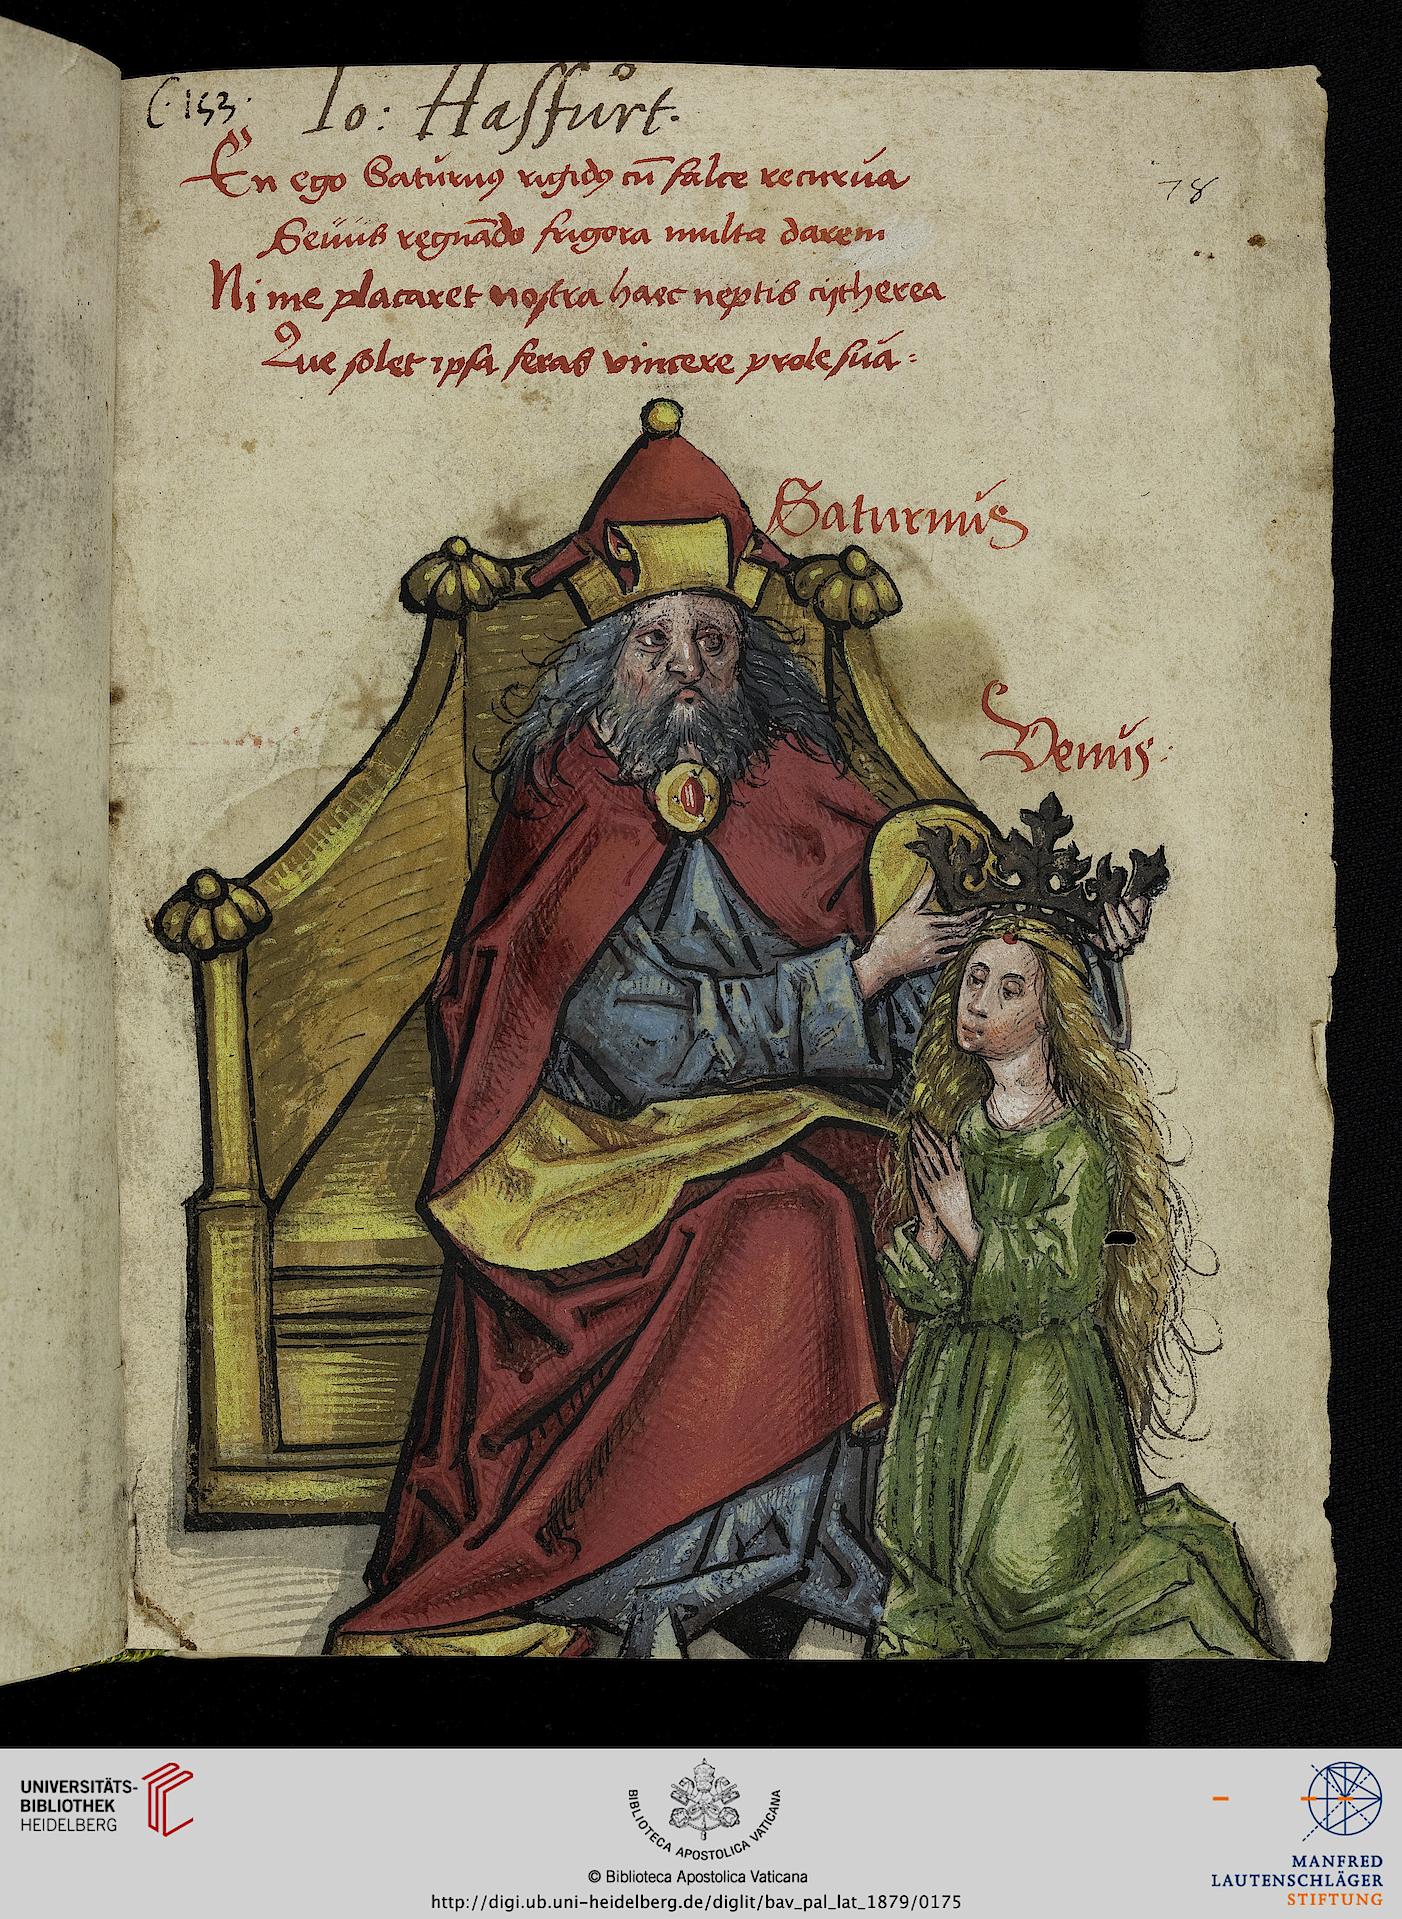 C. 153. Io: Hasfůrt.
78
En ego Saturnꝰ rigidꝰ cū falce recurua
Seuus regnādo frigora multa darem
Ni me placaret nostra haec neptis cytherea
Que solet ipsa feras vincere prole sua:
Saturnus
Venus:
UNIVERSITÄTS-
BIBLIOTHEK
HEIDELBERG
BIBLIOTECA APOSTOLICA VATICANA
© Biblioteca Apostolica Vaticana
http://digi.ub.uni-heidelberg.de/diglit/bav_pal_lat_1879/0175
MANFRED
LAUTENSCHLÄGER
STIFTUNG